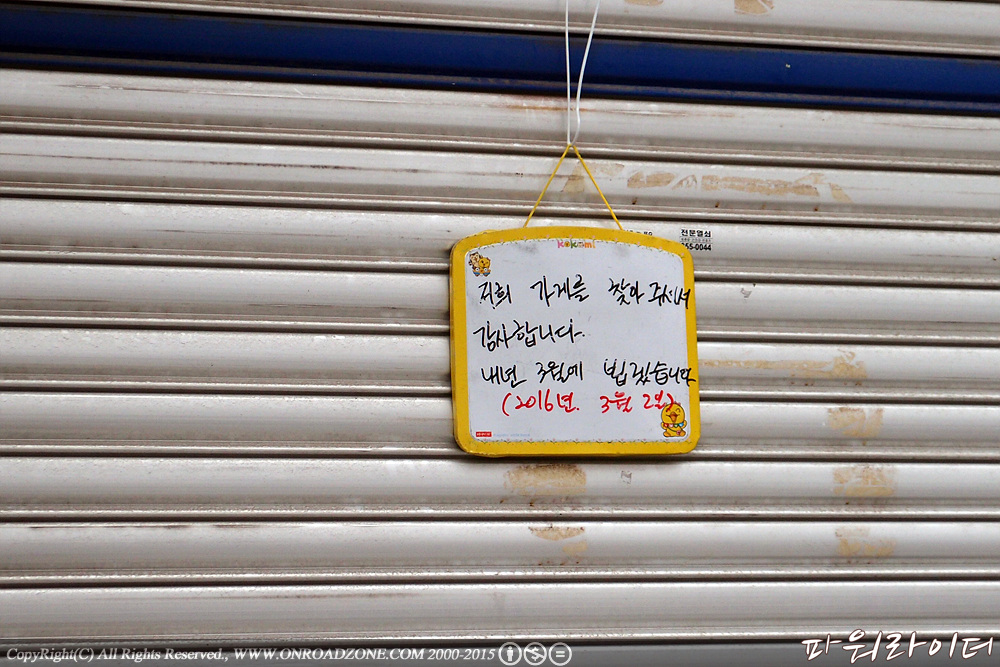 전문열쇠
55-0044
kokomi
저희 가게를 찾아 주셔서
감사합니다.
내년 3월에 뵙겠습니다
(2016년. 3월 2일)
CopyRight(C) All Rights Reserved., WWW.ONROADZONE.COM 2000-2015
파워라이더